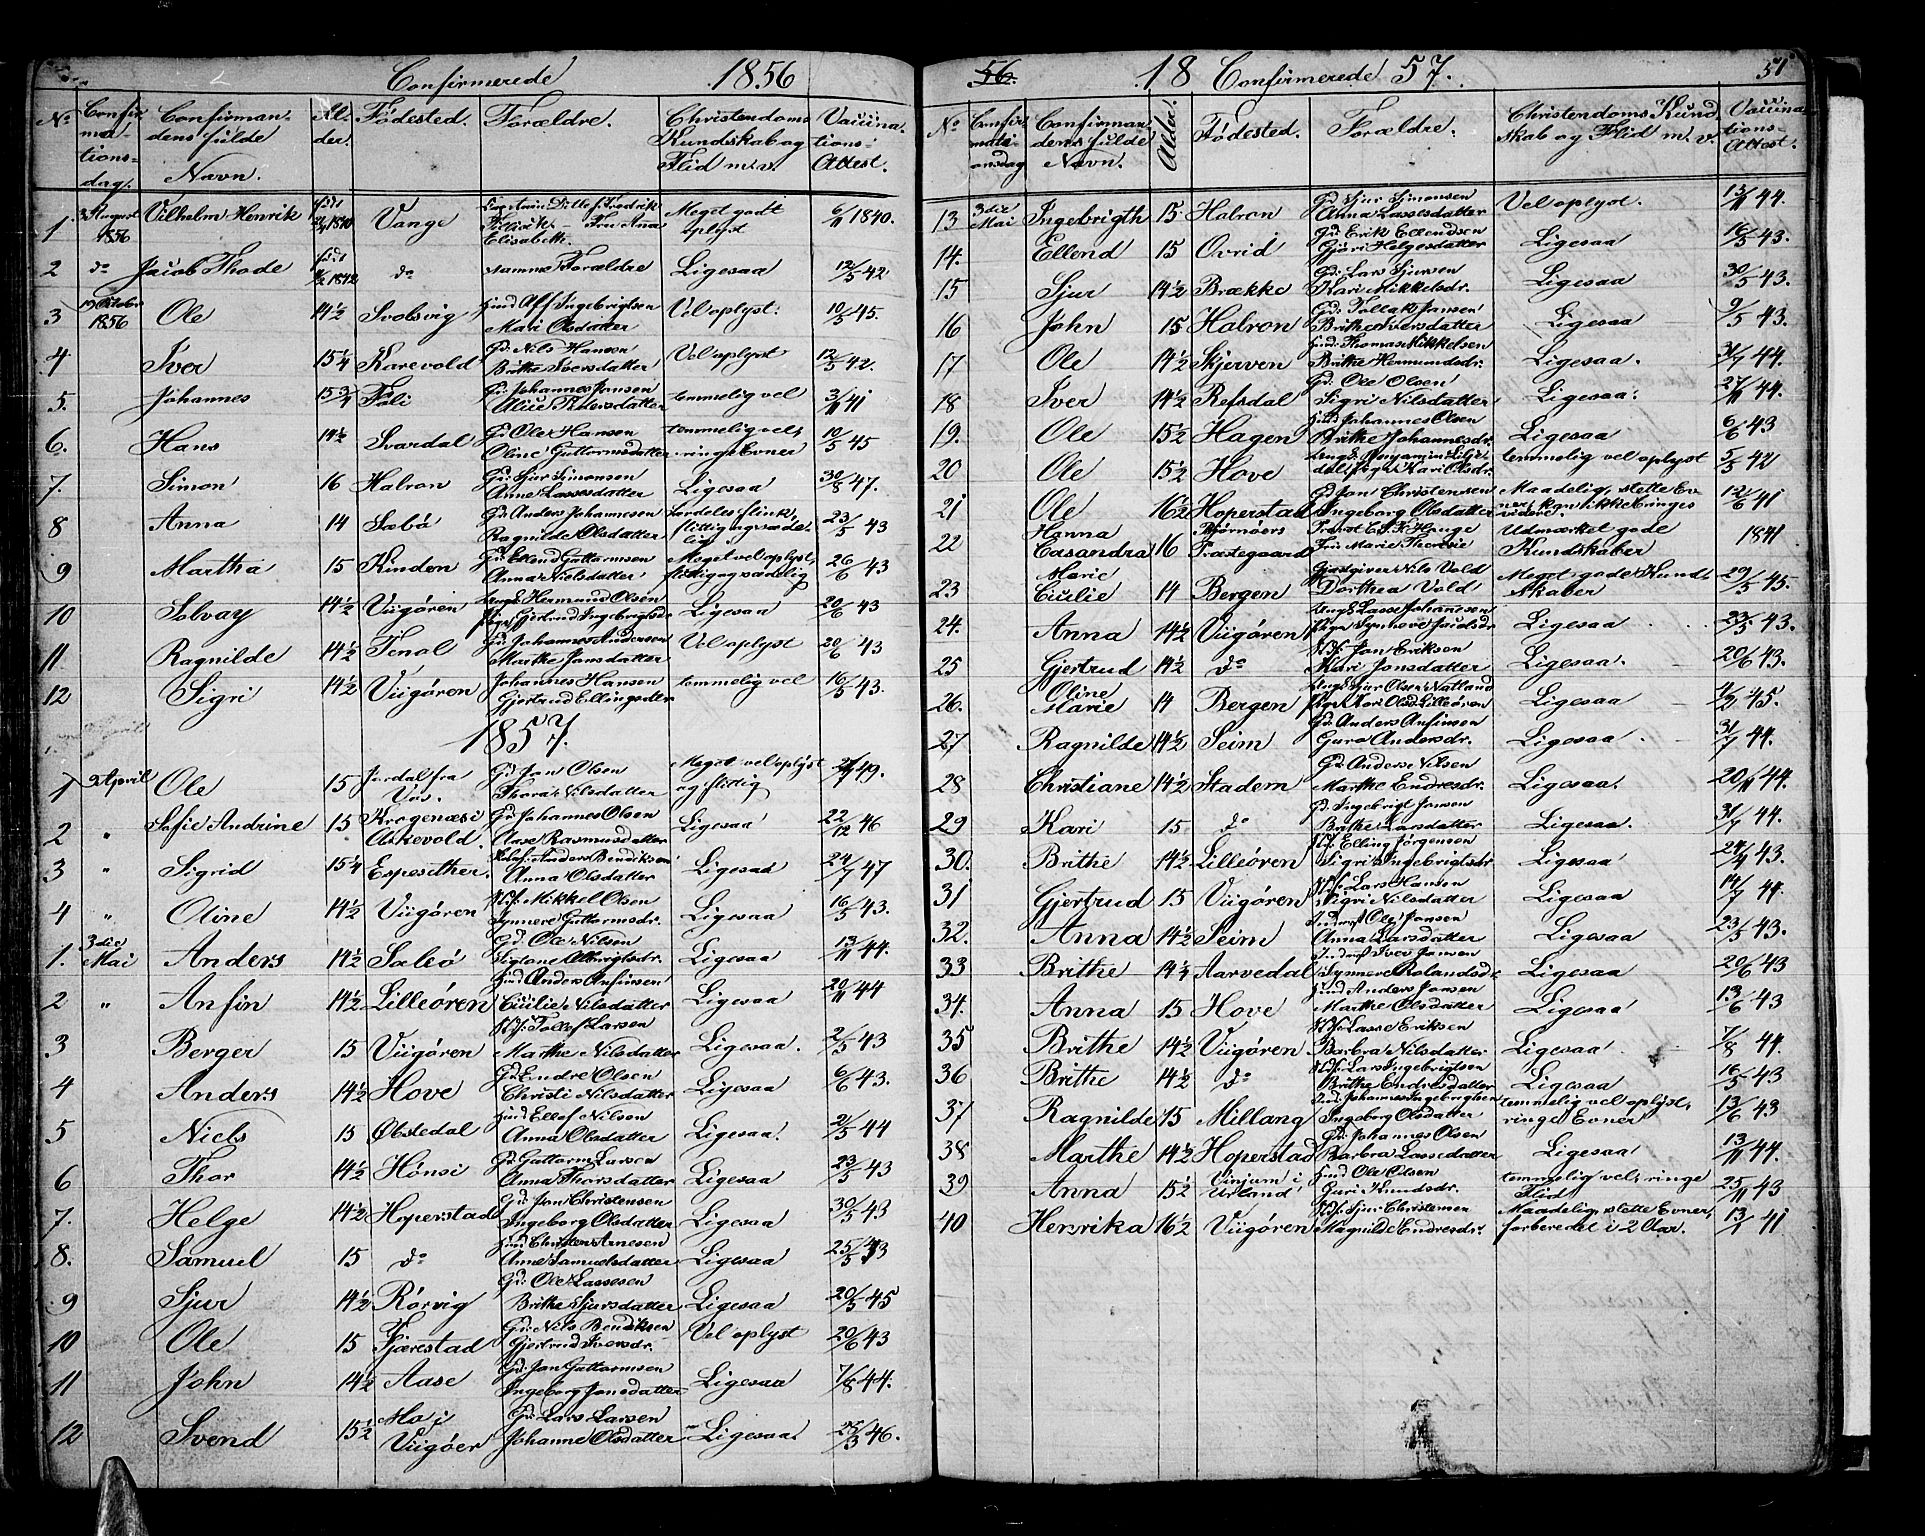 Confirmerede 1856
No Confirmations-dag. Confirmandens fulde Navn. Alder. Fødested. Forældre. Christendoms Kundskab og Flid m.v. Vaccinations-Attest.
1 3 August 1856 Vilhelm Henrik Vange Elisabeth. Fru Ana Meget godt oplyst 6/11 1840.
2 do Jacob Thode do samme Forældre Ligesaa 12/5 42
3 October 1856 Ole 14½ Svolsvig Mari Olsdatter Vel oplyst. 10/5 45.
4 Iver 15¼ Karevold Gd. Nils Hansen Brithe Iversdatter Vel oplyst 12/5 42.
5. Johannes 15¾ Foli Gd. Johannes Jonsen temmelig vel 3/11 41
6. Hans 14½ Svardal Gd. Ole Hansen Oline Guttormsdatter temmelig vel, ringe Evner 10/5 45
7. Simon 16 Halron Gd. Sjur Simonsen Anne Lassesdatter Ligesaa 30/8 47.
8 Anna 14 Sæbø Gd. Anders Johannesen Ragnilde Olsdatter særdeles flink, flittig og sædelig 23/5 43
9 Martha 15 Kinden Gd. Ellend Guttormsen Anna Nielsdatter Meget vel oplyst, flittig og sædelig 26/6 43
10 Solvay 14½ Viigøren Ungk. Hermund Olsen Pige Gjertrud Ingebrigtsdr Ligesaa 20/6 43
11 Ragnilde 14½ Fenol Gd. Johannes Andersen Marthe Jonsdatter Vel oplyst 20/6 43
12 Sigri 14½ Viigøren Johannes Hansen Gjertrud Ellingsdtr temmelig vel 16/5 43.
1857.
1 3 April Ole 15 Jordal fra Vos. Gd. Jon Olsen Thora Nilsdatter Meget vel oplyst og flittig 49.
2 " Sofie Andrine 15 Askevold. Gd. Johannes Olsen Aase Rasmusdatter Ligesaa 22/12 46
3 " Sigrid 15¼ Espesether. Anders Bendiksen Anna Olsdatter Ligesaa 24/7 47
4 " Oline 14½ Viigøren Mikkel Olsen Synnere Guttormsdr. Ligesaa 16/5 43.
1. 3die Mai Anders 14½ Sæbø Gd. Ole Nilsen Ligesaa 13/11 44.
2 " Anfin 14½ Lilleøren Huusd Anders Anfinsen Cicilie Nilsdatter Ligesaa 20/11 44
3 Berger 15 Viigøren Tollef Larsen Marthe Nilsdatter Ligesaa. 2/5 43
4 Anders 14½ Hove Gd. Endre Olsen Christi Nilsdatter Ligesaa 6/6 43.
5 Niels 15 Øbstedal Huusd Ellef Nilsen Anna Olsdatter Ligesaa. 2/5 44
6 Thor 14½ Hønsi Gd. Guttorm Larsen Anna Thorsdatter Ligesaa 23/5 43
7. Helge 14½ Hoperstad Gd. Jon Christensen Ingeborg Olsdatter Ligesaa 30/5 43
8. Samuel 15 do Huusd Christen Arnesen Anne Samuelsdatter Ligesaa 25/5 43
9 Sjur 14½ Rørvig Gd. Ole Lassesen Brithe Sjursdatter Ligesaa 20/5 45
10 Ole 15 Fjærestad Gd. Nils Bendiksen Gjertrud Iversdr. Vel oplyst 20/6 43
11 John 14½ Aase Gd. Jon Guttormsen Ingeborg Jonsdatter Ligesaa 7/8 44.
12 Svend 15½ Mo i Viigøer Gd. Lars Larsen Johanne Olsdatter Ligesaa 25/3 46.
56. 18 Confirmerede 57. 51
No Confirmationsdag Confirmandens fulde Navn. Alder. Fødested. Forældre. Christendoms Kundskab og Flid m.v. Vaccinations-Attest.
13 3die Mai Ingebrigth 15 Halron Gd Sjur Simonsen Anna Lassesdatter Vel oplyst. 13/11 44.
14. Ellend 15 Ovrid Gd. Erik Ellendsen Gjøri Helgesdatter Ligesaa 16/5 43.
15 Sjur 14½ Brække Gd. Lars Sjursen Kari Mikkelsdr. Ligesaa 30/5 43.
16 John 15 Halron Gd. Tollak Jansen Brithe Iversdatter Ligesaa 9/5 43.
17 Ole 14½ Skjerven Huusd. Thomas Mikkelsen Brithe Hermundsdr. Ligesaa. 31/7 44.
18 Iver 14½ Refsdal Gd. Ole Olsen Sigri Nilsdatter Ligesaa. 27/11 44.
19. Ole 15½ Hagen Huusd Johannes Olsen Brithe Johannesdr. Ligesaa 6/6 43
20 Ole 15½ Hove Pige Kari Olsdr. temmelig vel oplyst 5/5 42
21 Ole 16½ Hoperstad Gd Jon Christensen Ingeborg Olsdatter Maadelig, slette Evner, kan ikke bringes videre. 12/6 41
22 Hanna Casandra 16 Præstegaard Provst Fru Marie Theresie Udmærket gode Kundskaber 1841
23 Marie Cicilie 14 Bergen Gjæstgiver Nils Vold Dorthea Vold Meget gode Kundskaber 29/5 45.
24. Anna 14½ Viigøren Ungk Lasse Johannesen Ligesaa 23/5 43.
25 Gjertrud 14½ do Jon Eriksen Kari Jonsdatter Ligesaa. 20/6 43.
26. Oline Marie 14 Bergen Ungk Sjur Olsen Natland Pige Kari Olsd. Lilleøren Ligesaa 45.
27 Ragnilde 14½ Seim Gd. Anders Anfinsen Guro Andersdr. Ligesaa. 31/7 44.
28 Christiane 14½ Stadem Gd. Anders Nilsen Marthe Endresdr. Ligesaa 20/11 44.
29 Kari 15 do Gd. Ingebrigt Jonsen Brithe Larsdatter Ligesaa. 31/7 44.
30. Brithe 14½ Lilleøren Elling Jørgensen Sigri Ingebrigtsdr Ligesaa 43.
31 Gjertrud 15 Viigøren Lars Hansen Sigri Nilsdatter Ligesaa 14/7 44.
32. Anna 14½ Seim Ole Jonsen Anna Larsdatter Ligesaa 23/5 43.
33 Brithe 14¼ Aarvedal Iver Jonsen Synnere Rolandsdr Ligesaa 20/6 43
34. Anna 15 Hove Huusd Anders Jonsen Marthe Olsdatter Ligesaa 13/6 43
35 Brithe 14½ Viigøren Lasse Eriksen Barbra Nilsdatter Ligesaa 7/8 44.
36 Brithe 14½ do Lars Ingebrigtsen Brithe Endresdatter Ligesaa 16/5 43
37 Ragnilde 15 Millang Johannes Ingebrigtsen Ingeborg Olsdatter temmelig vel oplyst, ringe Evner 13/6 43
38 Marthe 14½ Hoperstad Gd. Johannes Olsen Barbra Lassedatter Ligesaa 13/11 44.
39 Anna 15½ Vinjum i Urland Huusd Ole Olsen Guri Knudsdr. temmelig vel, ringe Flid 25/11 43
40 Henrika 16½ Viigøren Sjur Christensen Magnilde Endresdr. Maadelig, slette Evner, forberedel i 2 Aar. 13/7 41